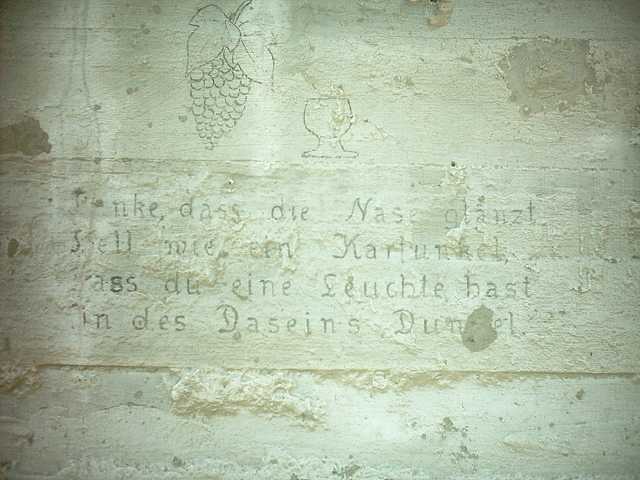 Trinke, dass die Nase glänzt,
Hell wie ein Karfunkel,
Dass du eine Leuchte hast
in des Daseins Dunkel.